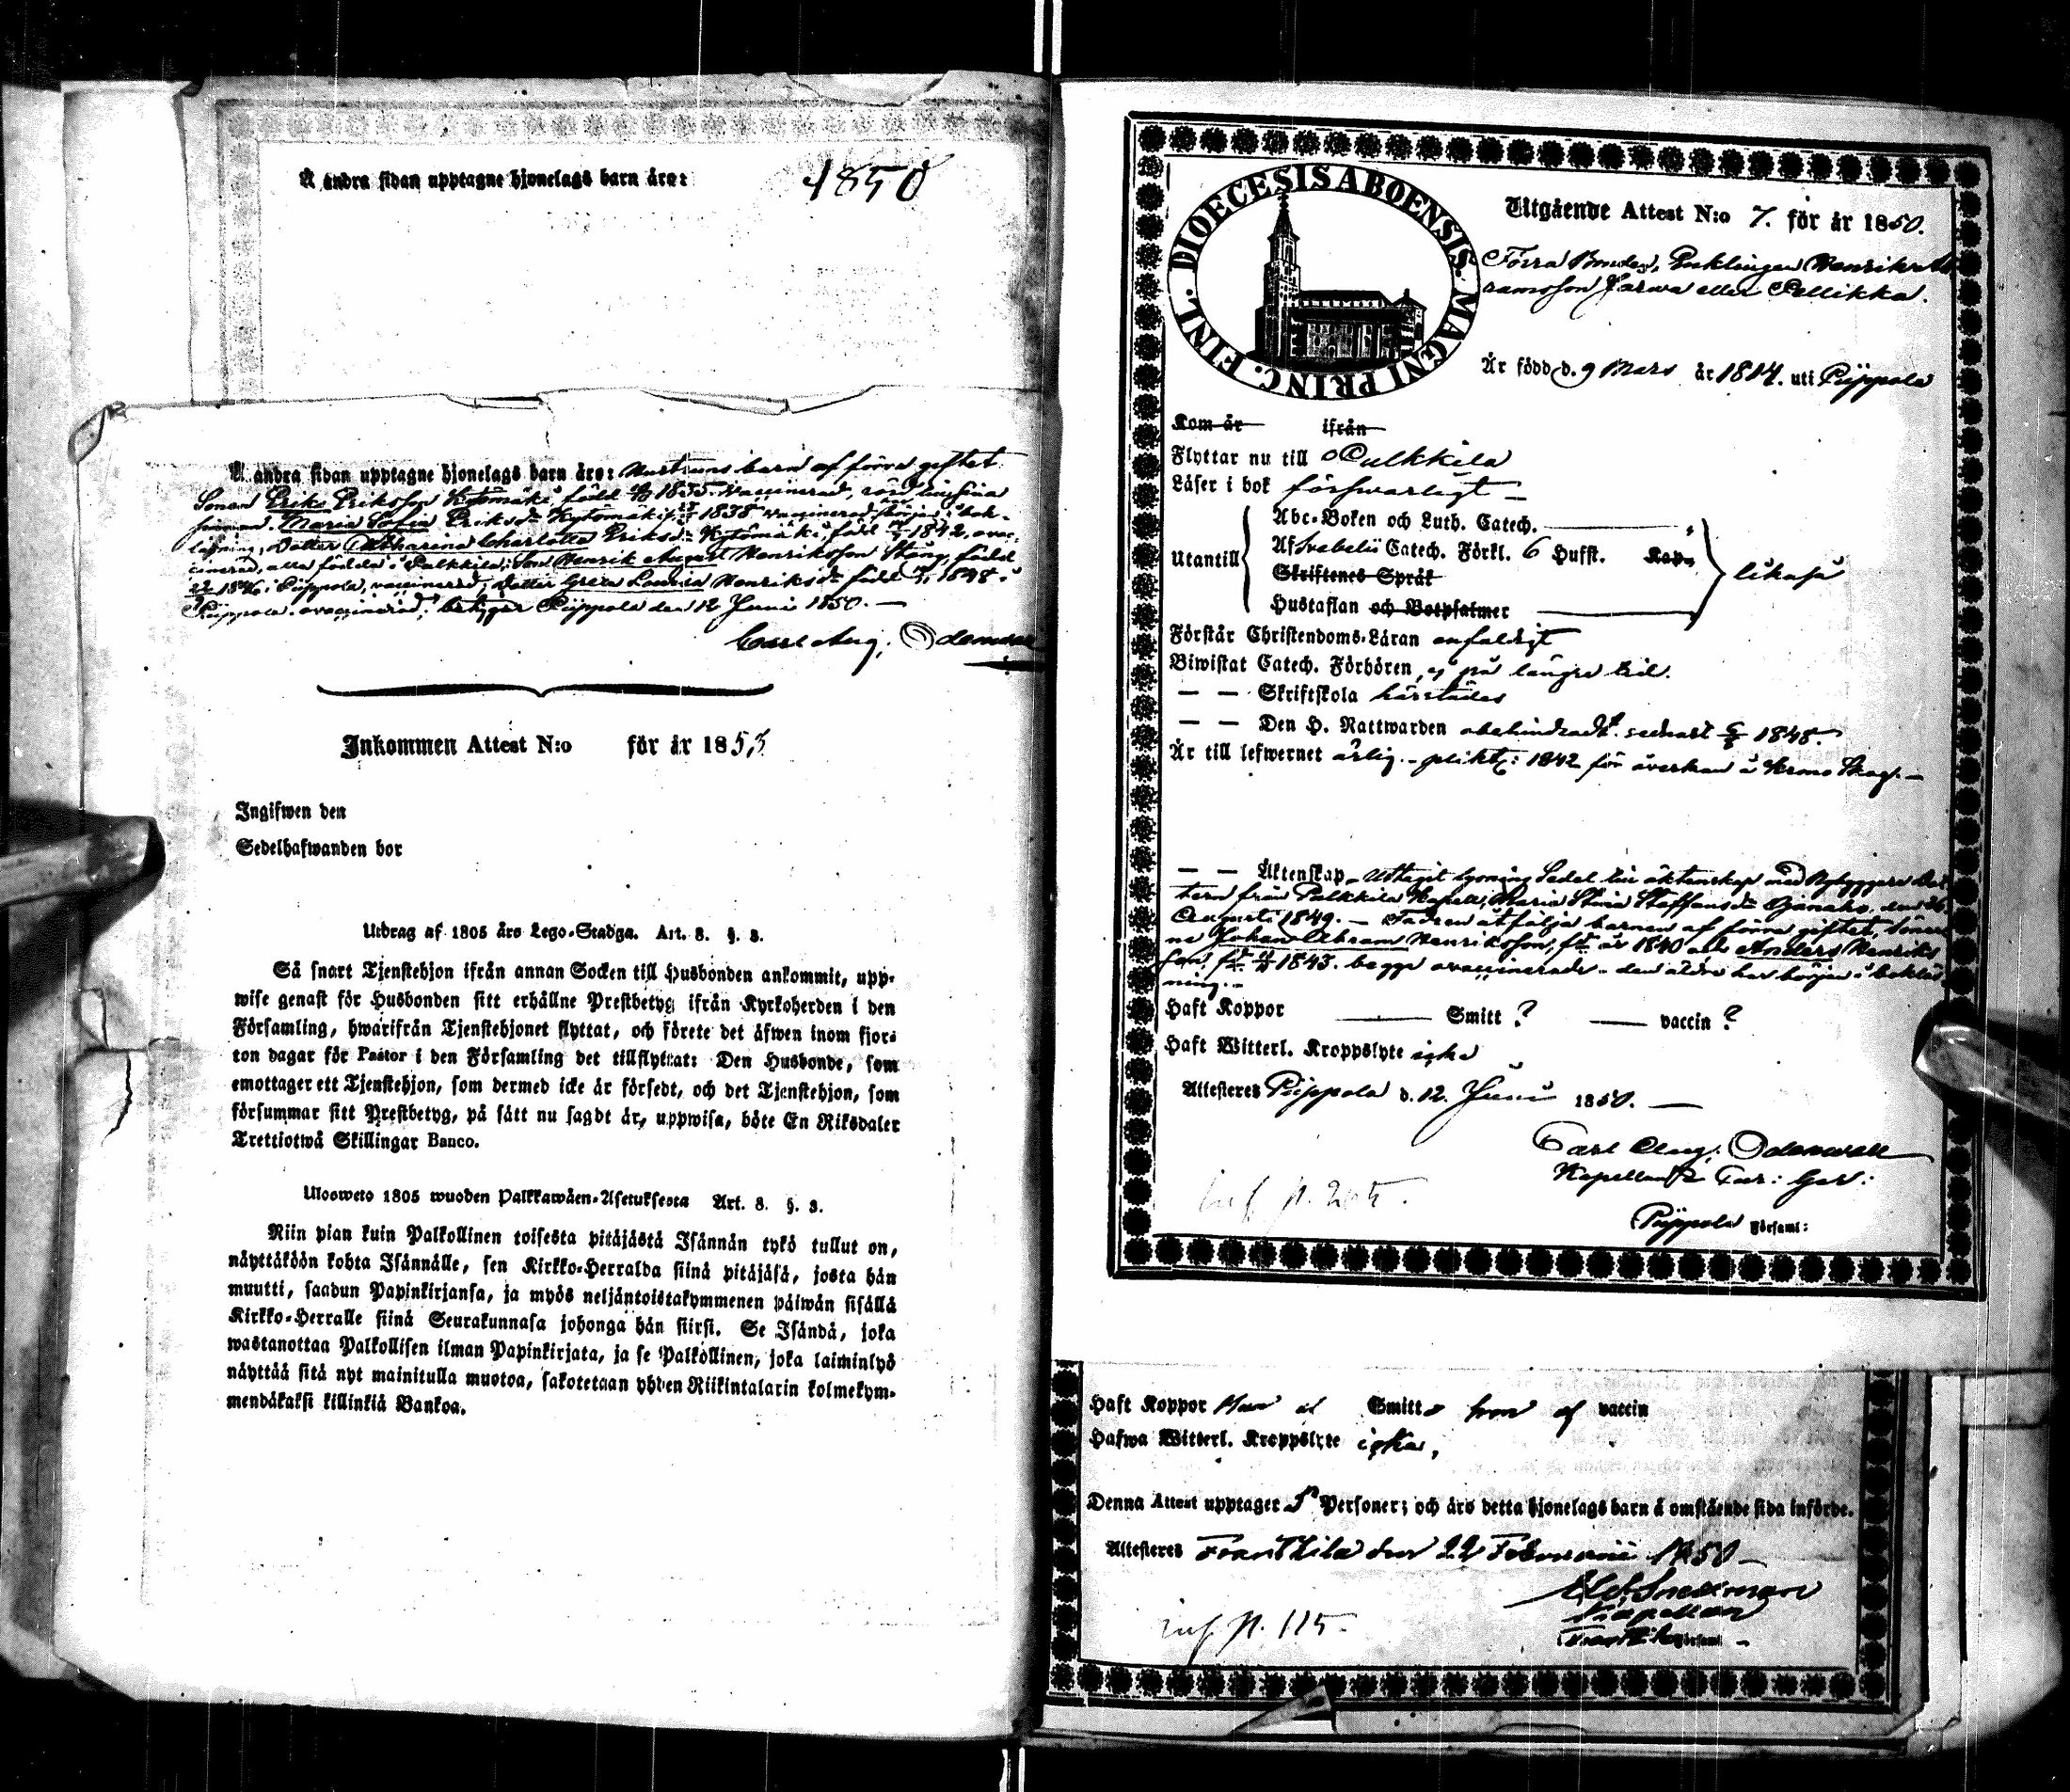 Å andra sidan upptagne hjonelags barn äro:
1850
Å andra sidan upptagne hjonelags barn äro: Hustruns barn af förra giftet
Sonen Eriks Eriksson Kytömäki, född 1835. vaccinerad,
Maria Sofia Eriksdr Kytömäki 1838 vaccinerad börjar i bok-
läsning, Dotter Catharina Charlotta Eriksdr Kytömäki, född 1842, ovac-
cinerad, alla födda i Pulkkila; Son Henrik August Henriksson Stång, född
1846 i Piippola, vaccinerad; Dotter Greta Lovisa Henriksdr född 1848 i
Piippola ovaccinerad; betygar Piippola den 12 Junii 1850. —
Carl Aug. Odenwall
Inkommen Attest N:o för år 1855
Ingifwen den
Sedelhafwanden bor
Utdrag af 1805 års Lego-Stadga. Art. 8. §. 3.
Så snart Tjenstehjon ifrån annan Socken till Husbonden ankommit, upp-
wise genast för Husbonden sitt erhållne Prestbetyg ifrån Kyrkoherden i den
Församling, hwarifrån Tjenstehjonet flyttat, och förete det äfwen inom fjor-
ton dagar för Pastor i den Församling det tillflyttat: Den Husbonde, som
emottager ett Tjenstehjon, som dermed icke är försedt, och det Tjenstehjon, som
försummar sitt Prestbetyg, på sätt nu sagdt är, uppwisa, böte En Riksdaler
Trettiotwå Skillingar Banco.
Ulosweto 1805 wuoden Palkkawäen-Asetuksesta Art. 8. §. 3.
Niin pian kuin Palkollinen toisesta pitäjästä Isännän tykö tullut on,
näyttäköön kohta Isännälle, sen Kirkko-Herralda siinä pitäjäsä, josta hän
muutti, saadun Papinkirjansa, ja myös neljäntoistakymmenen päiwän sisällä
Kirkko-Herralle siinä Seurakunnasa johonga hän siirsi. Se Isändä, joka
wastanottaa Palkollisen ilman Papinkirjata, ja se Palkollinen, joka laiminlyö
näyttää sitä nyt mainitulla muotoa, sakotetaan yhden Riikintalarin kolmekym-
mendäkaksi killinkiä Bankoa.
DIOECESIS ABOENSIS. MAGNI PRINC. FINL.
Utgående Attest N:o 7. för år 1850.
Förra Bonden, Enklingen Henrik Ab-
ramsson Jarwa eller Pellikka.
Är född d. 9 Mars år 1814. uti Piippola
Kom år ifrån
Flyttar nu till Pulkkila
Läser i bok förswarligt
Utantill
Abc-Boken och Luth. Catech.
Af Svebelii Catech. Förkl. 6 Hufst. Kap.
Skriftenes Språk
Hustaflan och Botpsalmer
likaså
Förstår Christendoms-Läran enfaldigt
Biwistat Catech. Förhören, ej på längre tid.
— — Skriftskola härstädes
— — Den H. Nattwarden obehindradt. sednast 1848.
Är till lefwernet ärlig. - plikt: 1842 för åverkan å Krono Skog. —
— — Äktenskap - Uttagit lysning Sedel till äktenskap med Nybyggare dot-
tern från Pulkkila Kapell, Maria Stina Staffansdr Ojanaho, den 26
Augusti 1849. — Fadren åtfölja barnen af förra giftet, Söner-
ne Johan Abram Henriksson, f. år 1840 och Anders Henriks-
son f. 1843. begge ovaccinerade - den äldre har börjat i boklä-
sning. -
Haft Koppor — Smitt ? — vaccin ?
Haft Witterl. Kroppslyte icke
Attesteres Piippola d. 12. Junii 1850. —
Carl Aug. Odenwall
Kapellan
Piippola Församl:
inf. p. 205.
Haft Koppor Man af Smitta hon af vaccin
Hafwa Witterl. Kroppslyte icke,
Denna Attest upptager 5 Personer; och äro detta hjonelags barn å omstående sida införde.
Attesteres Frantzila den 22 Februarii 1850 —
Snellman
Kapellan
Frantzila Församl.
inf. p. 115.